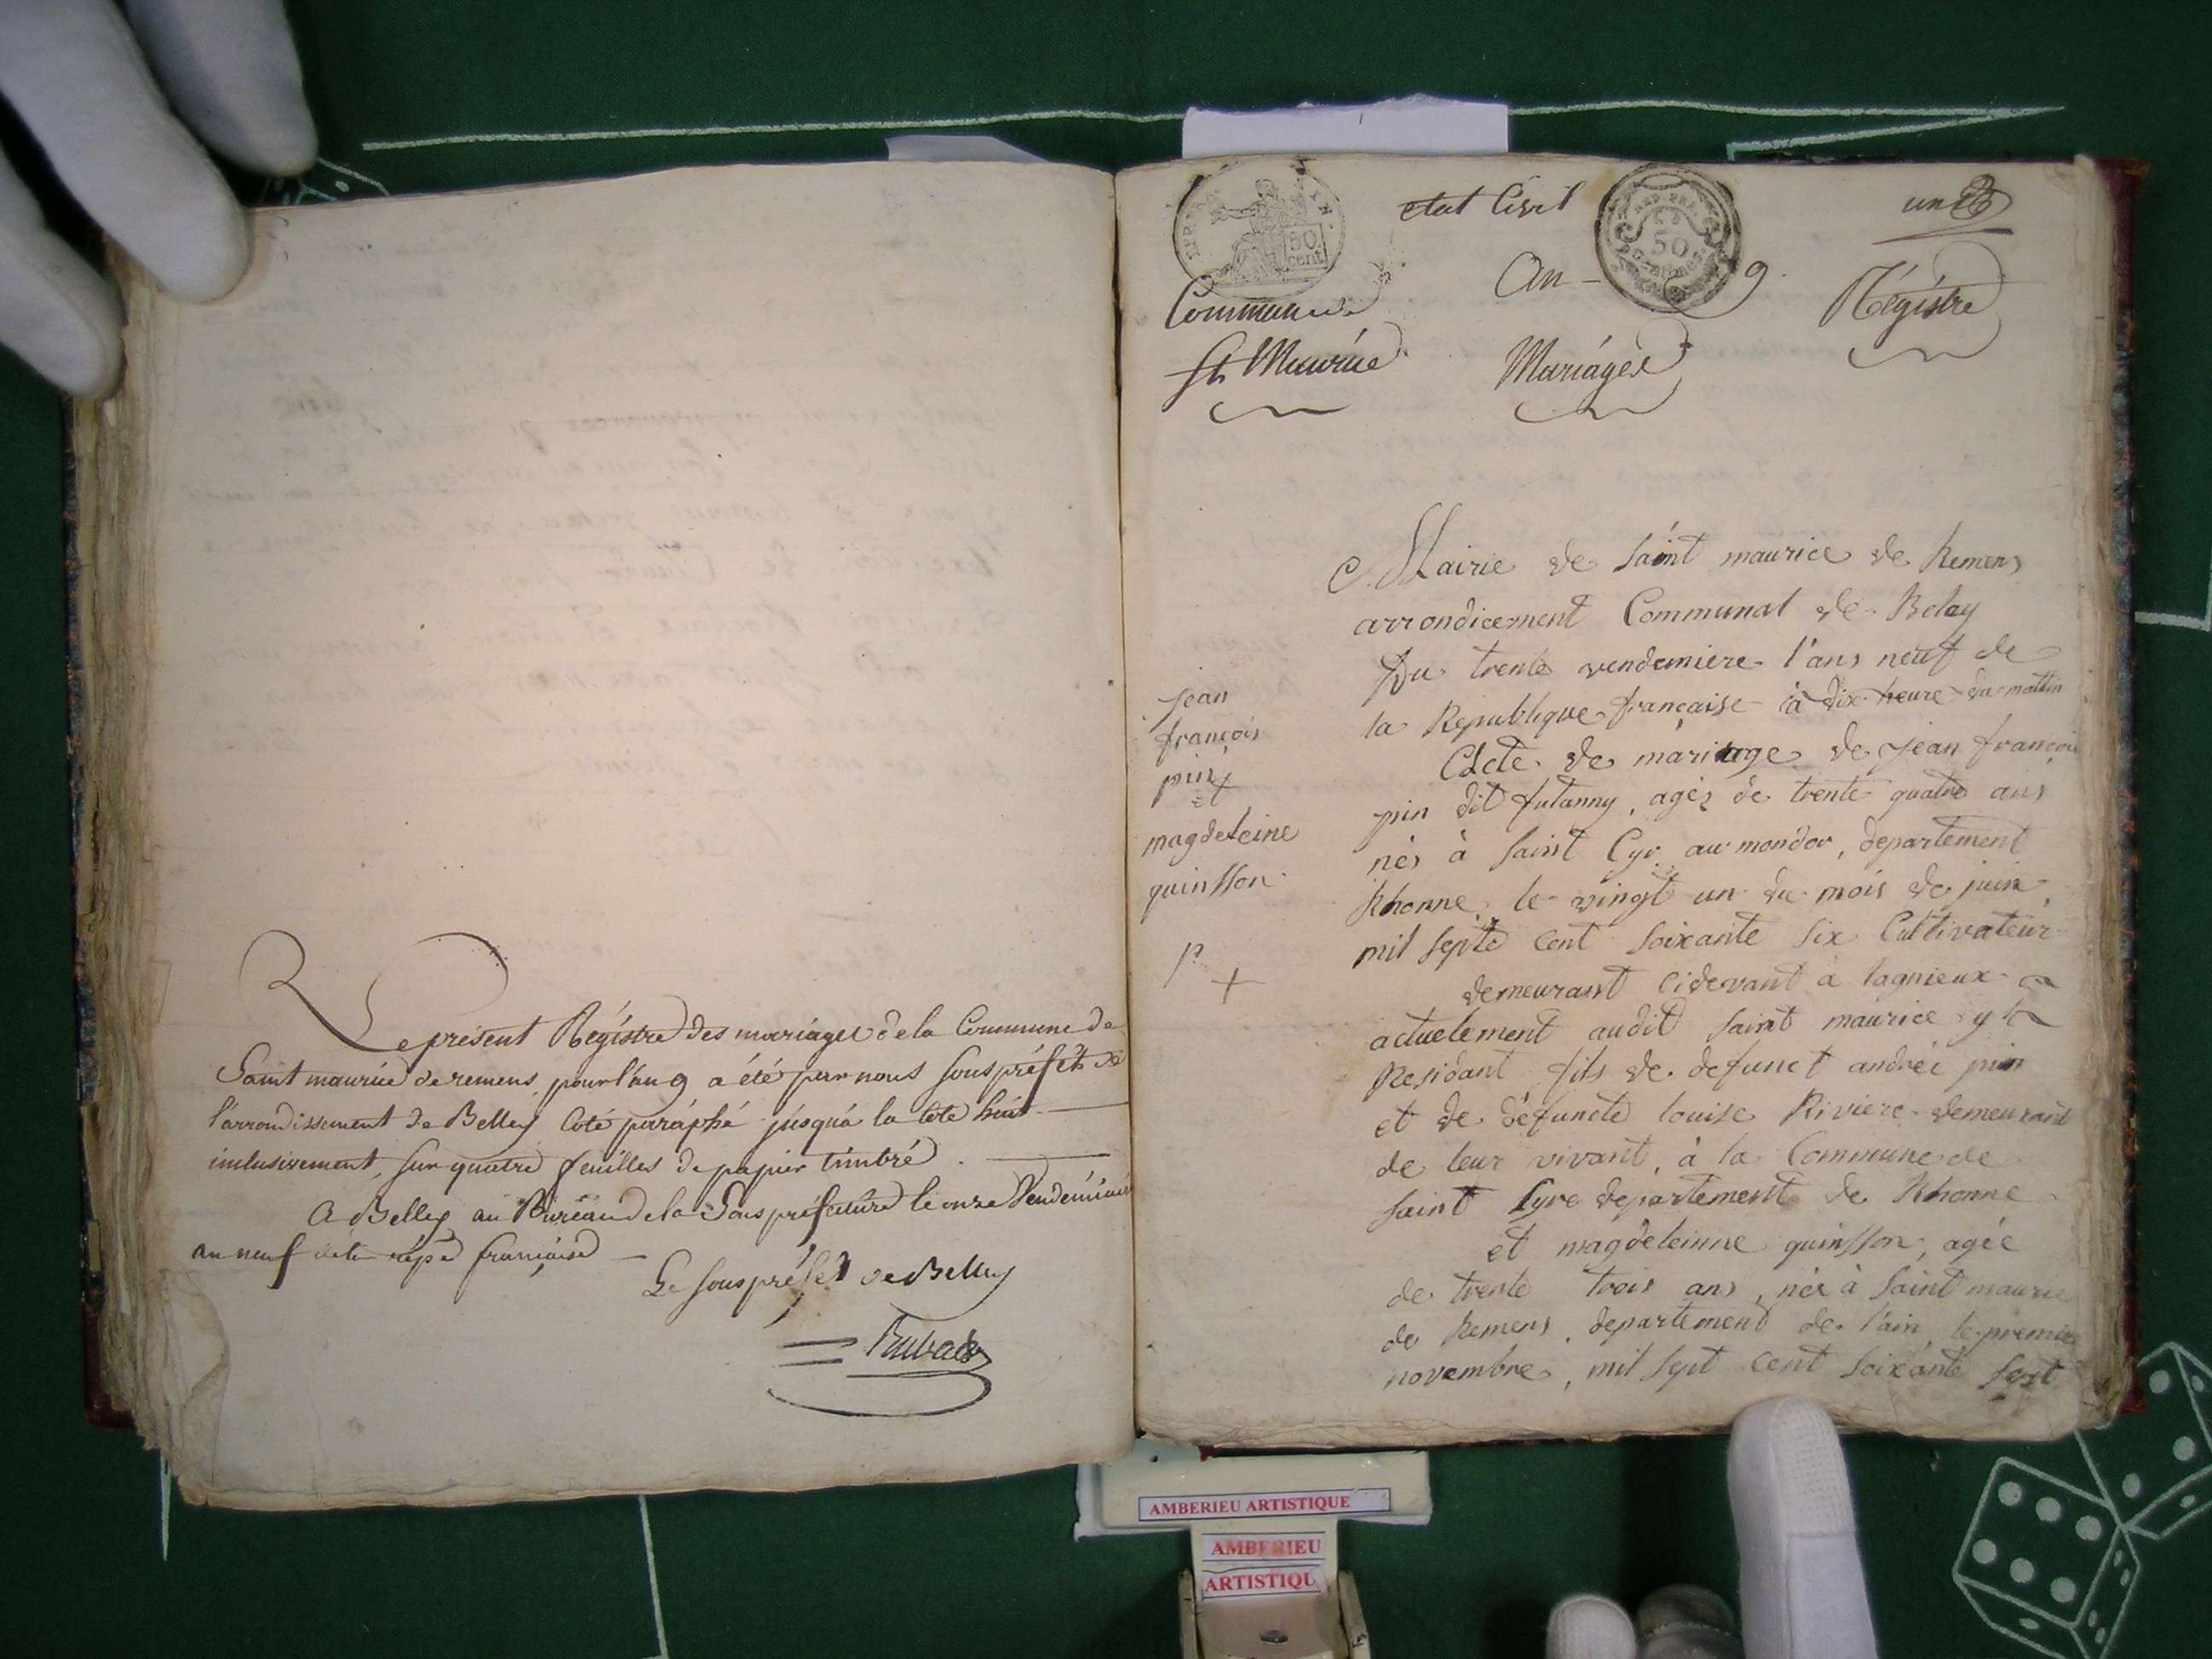 Le présent Régistre des mariages de la Commune de
Saint maurice de remens, pour l'an 9 a été par nous sous préfet de
l'arrondissement de Belley Coté paraphé jusqu'à la cote huit
inclusivement, sur quatre feuilles de papier timbré.
A Belley au Bureau de la Sous préfecture le onze Vendémiaire
an neuf de la répe française
Le sous préfet de Belley
50
cent
etat Civil
50
Centimes
un
Commune de
An - 9.
Régistre
St Maurice
Mariages
Mairie de saint maurice de Remens
arrondicement Communal de Beley
Du trente vendemiere l'ans neuf de
la Republique française à dix heure du mattin
Acte de mariage de jean françois
pin dit futanny, agés de trente quatre ans
nés à saint Cyr au mondor, departement
Rhonne, le vingt un du mois de juin
mil septe cent soixante six Cultivateur
demeurant cidevant a lagnieux
actuelement audit saint maurice y
Residant fils de defunct andréé pin
et de défuncte louise Riviere demeurant
de leur vivant, à la Commune de
saint Cyre departement de Rhonne
et magdeleinne quinsson, agée
de trente trois ans, née à saint maurice
de Remens, departement de l'ain, le premier
novembre, mil sept cent soixante sept
jean
françois
pin
et
magdeleine
quinsson
AMBERIEU ARTISTIQUE
AMBERIEU
ARTISTIQU